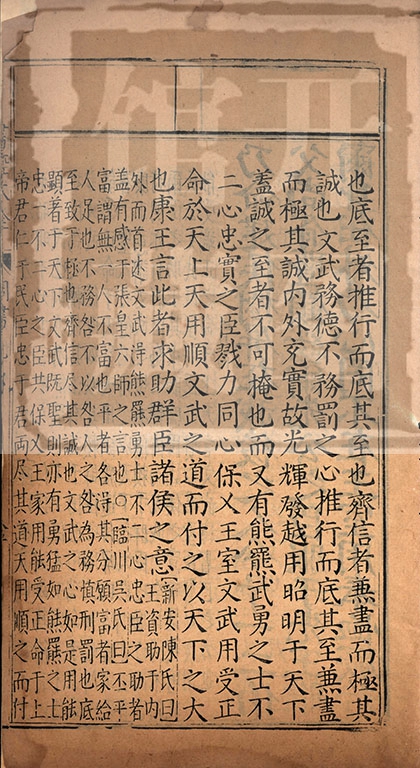 也底至者推行而底其至也齊信者兼盡而極其
誠也文武務德不務罰之心推行而底其至兼盡
而極其誠内外充實故光輝發越用昭明于天下
蓋誠之至者不可掩也而又有熊羆武勇之士不
二心忠實之臣戮力同心保乂王室文武用受正
命於天上天用順文武之道而付之以天下之大
也康王言此者求助群臣諸侯之意新安陳氏曰
王資助于内
外而首述文武得熊羆勇士不二心忠臣之助者
蓋有感于張皇六師之言也○臨川吳氏曰丕平
富謂無一人不富也平者各得其分願富者家給
人足也不務咎不以咎人之咎為務慎刑罰也底
至致于極也齊信尽其誠也文武之心如是用能
顯著于天下文武既聖則亦有勇猛如熊羆之士
忠一不二心之臣共保乂王家用能受正命于上
帝君仁于民臣忠于君両尽其道天用順之而付